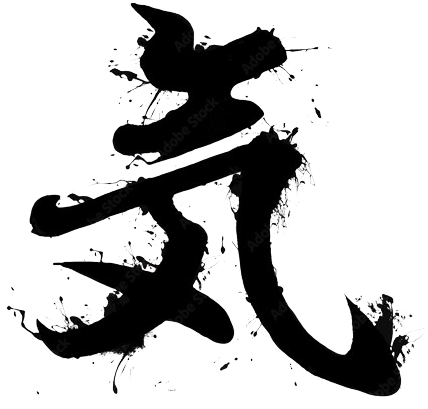 気
Adobe Stock